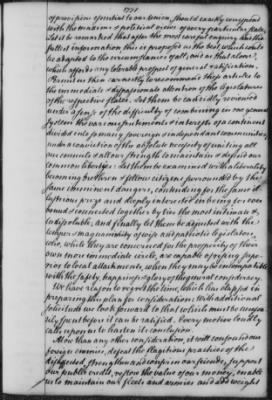 1777
of provisions essential to our union, should exactly correspond
with the maxims & political views of every particular State,
Let it be remarked that after the most careful enquiry & the
fullest information, this is proposed as the best, which could
be adapted to the circumstances of all, and as that alone
which affords any tolerable prospect of general ratification.
Permit us then earnestly to recommend these articles to
the immediate & dispassionate attention of the legislatures
of the respective states. Let them be candidly reviewed
under a sense of the difficulty of combining in one general
system the various sentiments & interests of a continent
divided into so many sovereign & independent communities,
under a conviction of the absolute necessity of uniting all
our councils & all our strength to maintain & defend our
common liberties: Let them be examined with a liberality
becoming brethren & fellow citizens surrounded by the
same imminent dangers, contending for the same il-
lustrious prize and deeply interested in being for ever
bound & connected together by ties the most intimate &
indissoluble, and finally let them be adjusted with the
temper & magnanimity of wise and patriotic legislators,
who, while they are concerned for the prosperity of their
own more immediate circle, are capable of rising supe-
rior to local attachments, when they may be incompatible
with the safety, happiness & glory of the general confederacy.
We have reason to regret the time, which has elapsed in
preparing this plan for consideration: With additional
solicitude we look forward to that which must be necessa-
rily spent before it can be ratified. Every motive loudly
calls upon us to hasten its conclusion.
More than any other consideration, it will confound our
foreign enemies, defeat the flagitious practices of the
disaffected, strengthen and confirm our friends, support
our public credit, restore the value of our money, enable
us to maintain our fleets and armies and add weight